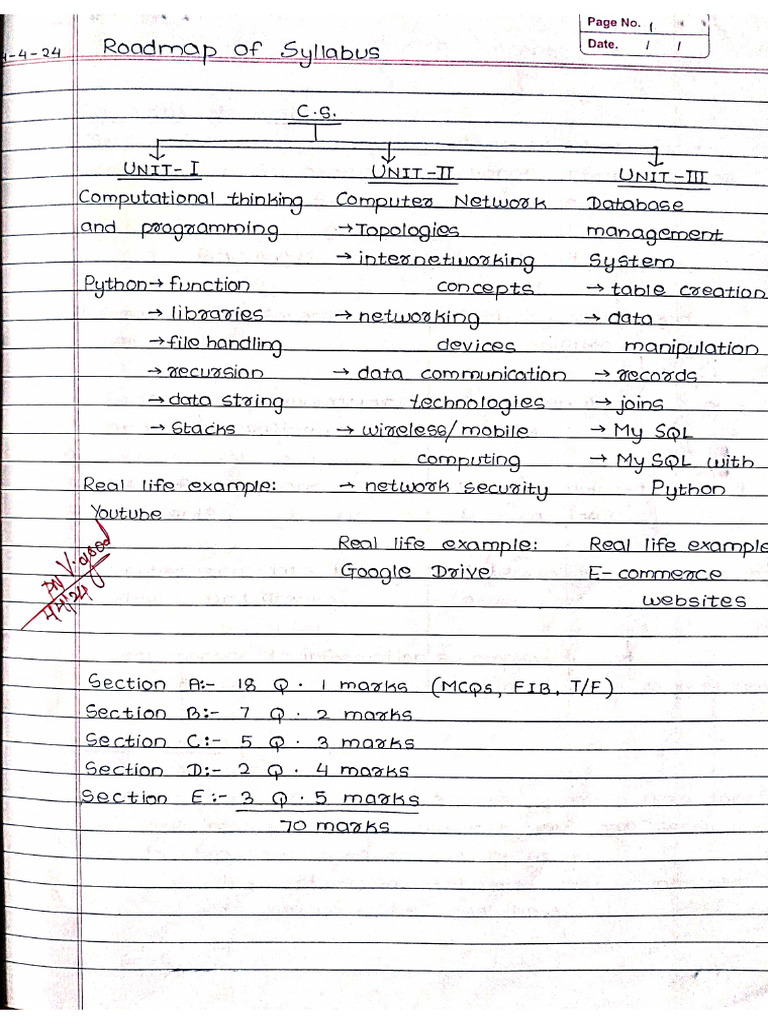 Page No. 1
Date. / /
-4-24 Roadmap of Syllabus
C.S.
UNIT-I UNIT-II UNIT-III
Computational thinking Computer Network Database
and programming →Topologies management
→internetworking System
Python→function concepts →table creation
→libraries →networking →data
→file handling devices manipulation
→recursion →data communication →records
→data string technologies →joins
→Stacks →wireless/mobile →My SQL
computing →My SQL with
Real life example: →network security Python
Youtube
Real life example: Real life example
Google Drive E-commerce
websites
4/4/24
Section A:- 18 Q · 1 marks (MCQs, FIB, T/F)
Section B:- 7 Q · 2 marks
Section C:- 5 Q · 3 marks
Section D:- 2 Q · 4 marks
Section E:- 3 Q · 5 marks
70 marks